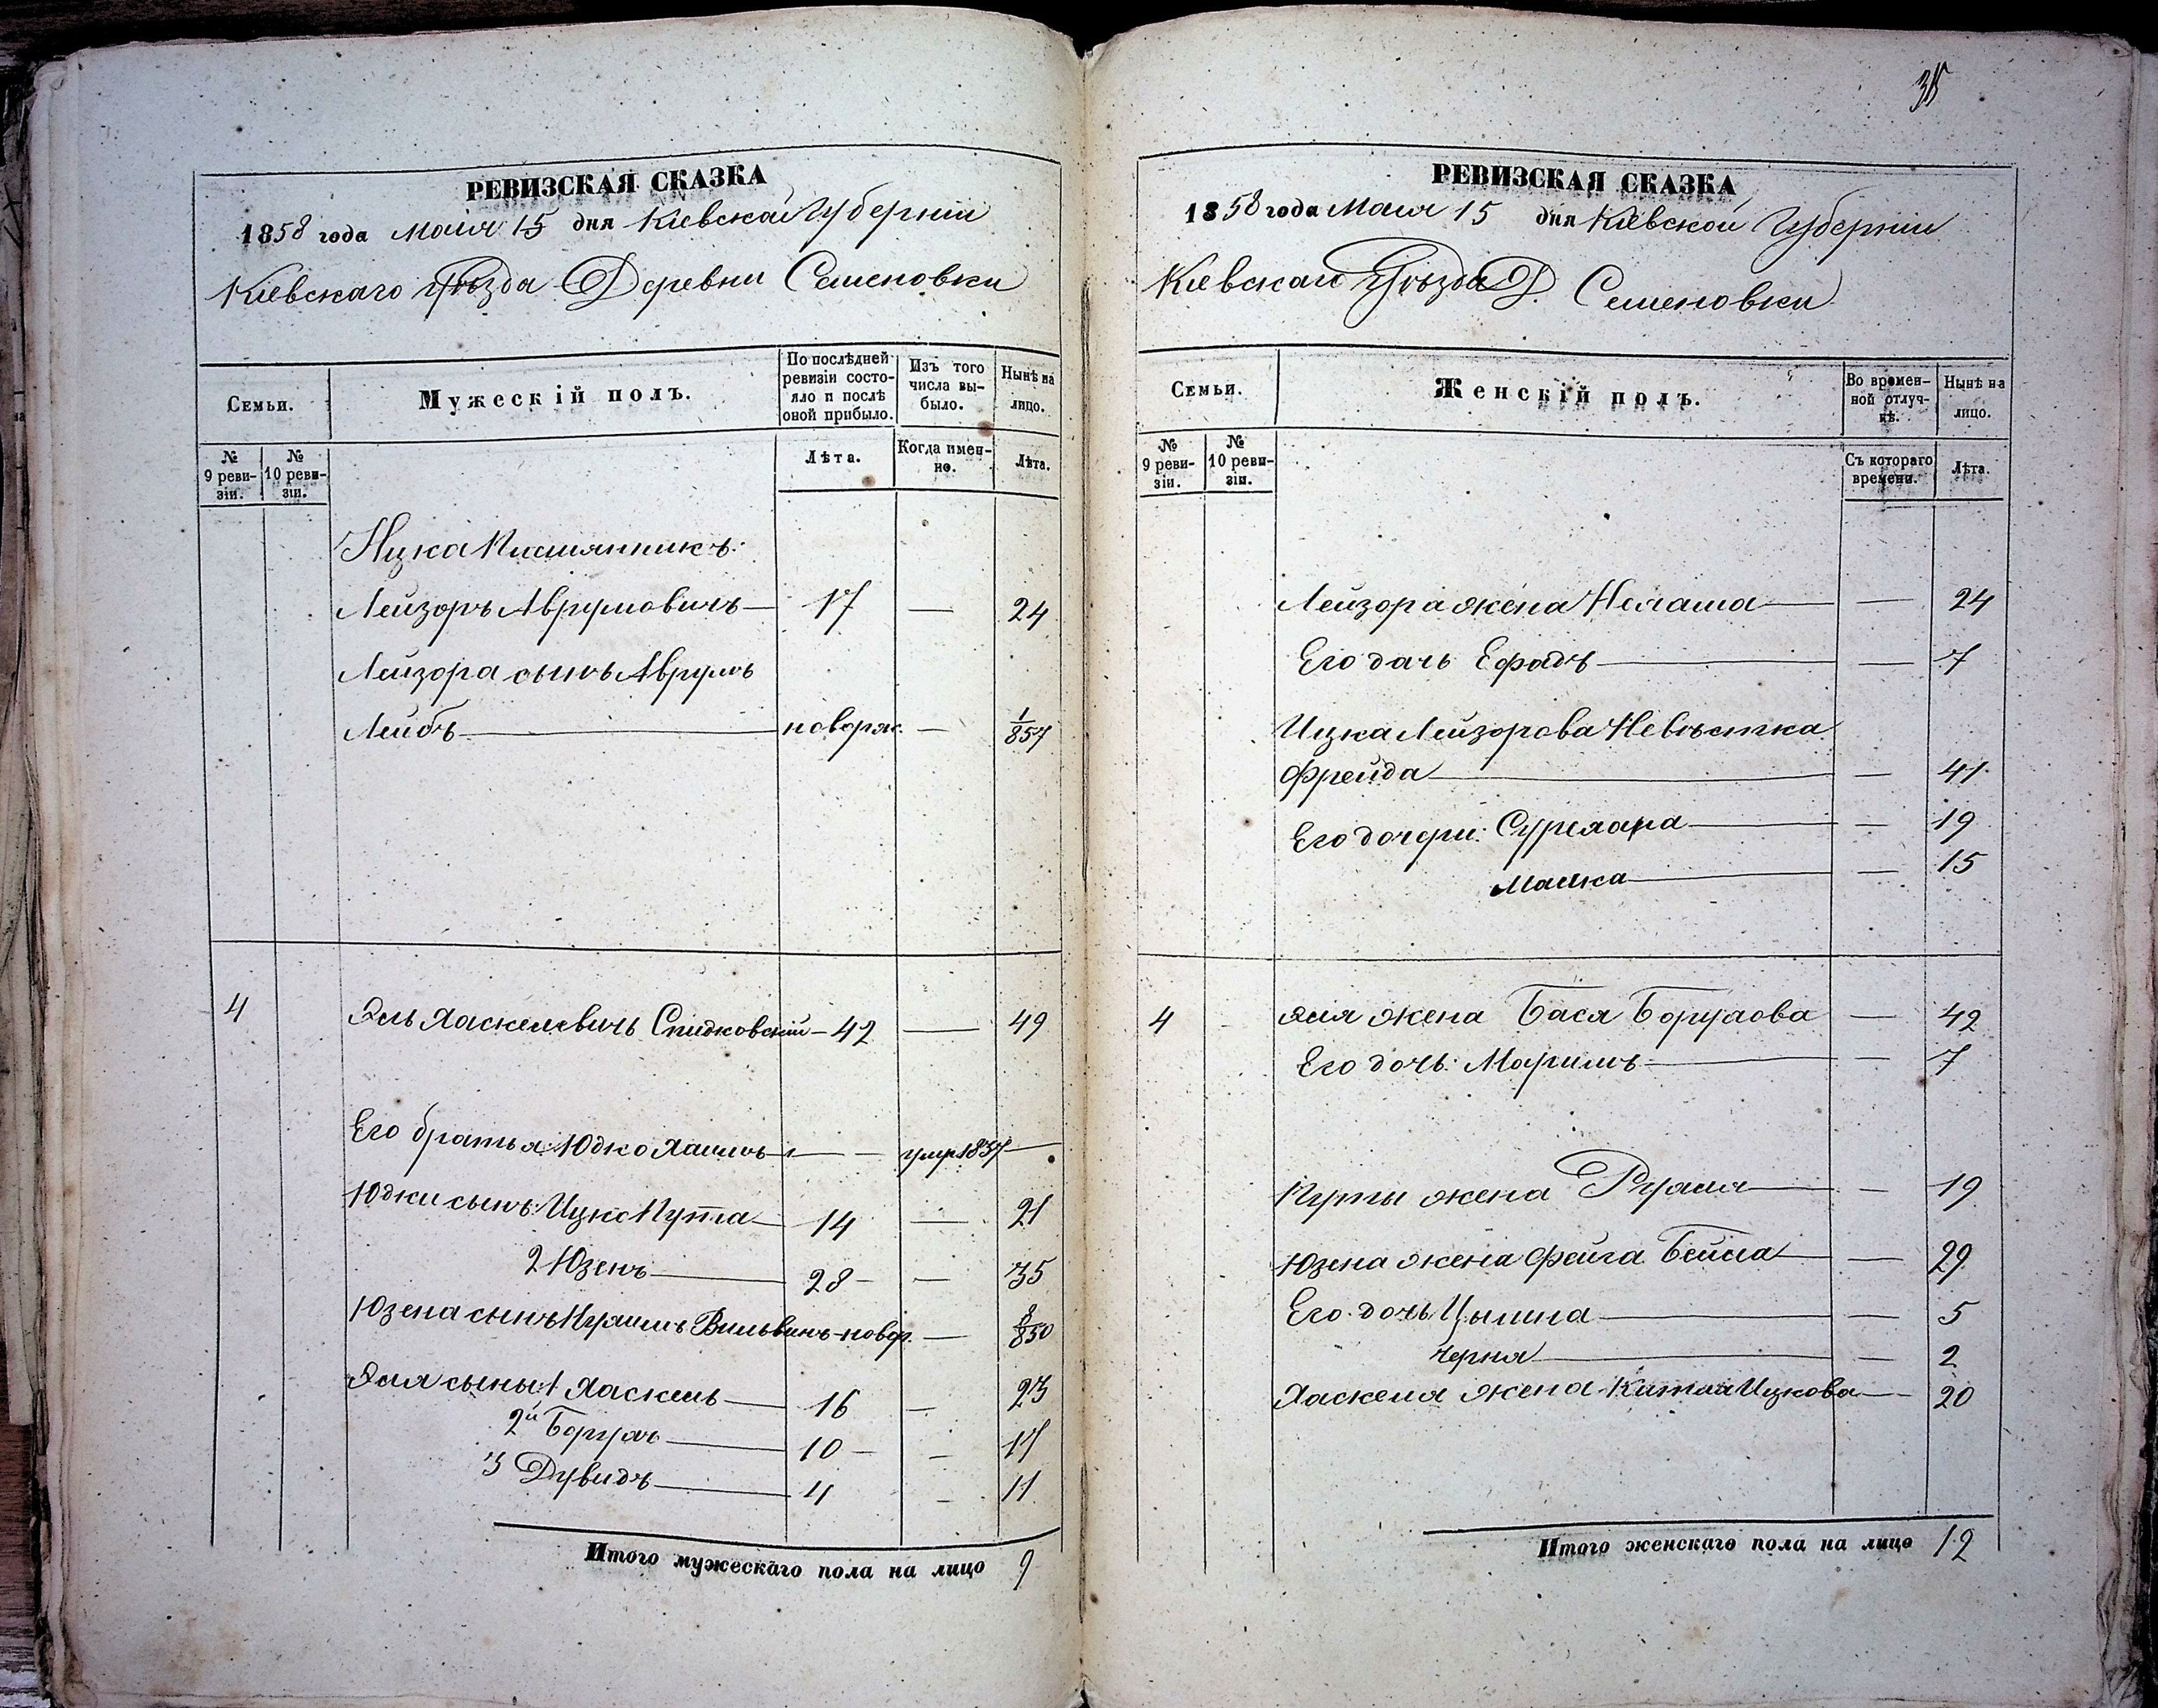 РЕВИЗСКАЯ СКАЗКА
1858 года Маія 15 дня Кіевской Губерніи
Кіевскаго Уѣзда Деревни Семеновки
Семьи.
Мужескій полъ.
По послѣдней ревизіи состояло и послѣ оной прибыло.
Изъ того числа выбыло.
Нынѣ на лицо.
№ 9 ревизіи.
№ 10 ревизіи.
Лѣта.
Когда именно.
Лѣта.
Ицка
Лейзоръ Аврумовичъ — 17 — 24
Лейзора сынъ Аврумъ
Лейбъ — новорж. — 1/857
4 Эль Хаскелевичъ Спидковскій — 42 — 49
Его братья: Юдко Хаимъ — — умр 1857 —
Юдки сынъ: Ицко — 14 — 21
2 Юзенъ — 28 — — 35
Юзена сынъ Нухимъ Вильвинъ — новор. — 8/850
Эля сыны: 1 Хаскель — 16 — 23
2й Борухъ — 10 — — 17
3 Дувидъ — 4 — 11
Итого мужескаго пола на лицо 9
РЕВИЗСКАЯ СКАЗКА
1858 года Маія 15 дня Кіевской Губерніи
Уѣзда Д. Семеновки
Семьи.
Женскій полъ.
Во временной отлучкѣ.
Нынѣ на лицо.
№ 9 ревизіи.
№ 10 ревизіи.
Съ котораго времени.
Лѣта.
Лейзора жена Нехама — — 24
Его дочь Ефадъ — — 7
Ицка Лейзорова Невѣстка
Фрейда — — 41
Его дочери: — — 19
Малка — — 15
4 Эля жена Бася Борухова — 42
Его дочь: Маримъ — — 7
жена Рухля — — 19
Юзена жена Фейга Бейла — — 29
Его дочь Цыпина — — 5
Черня — — 2
Хаскеля жена Ицкова — 20
Итого женскаго пола на лицо 12